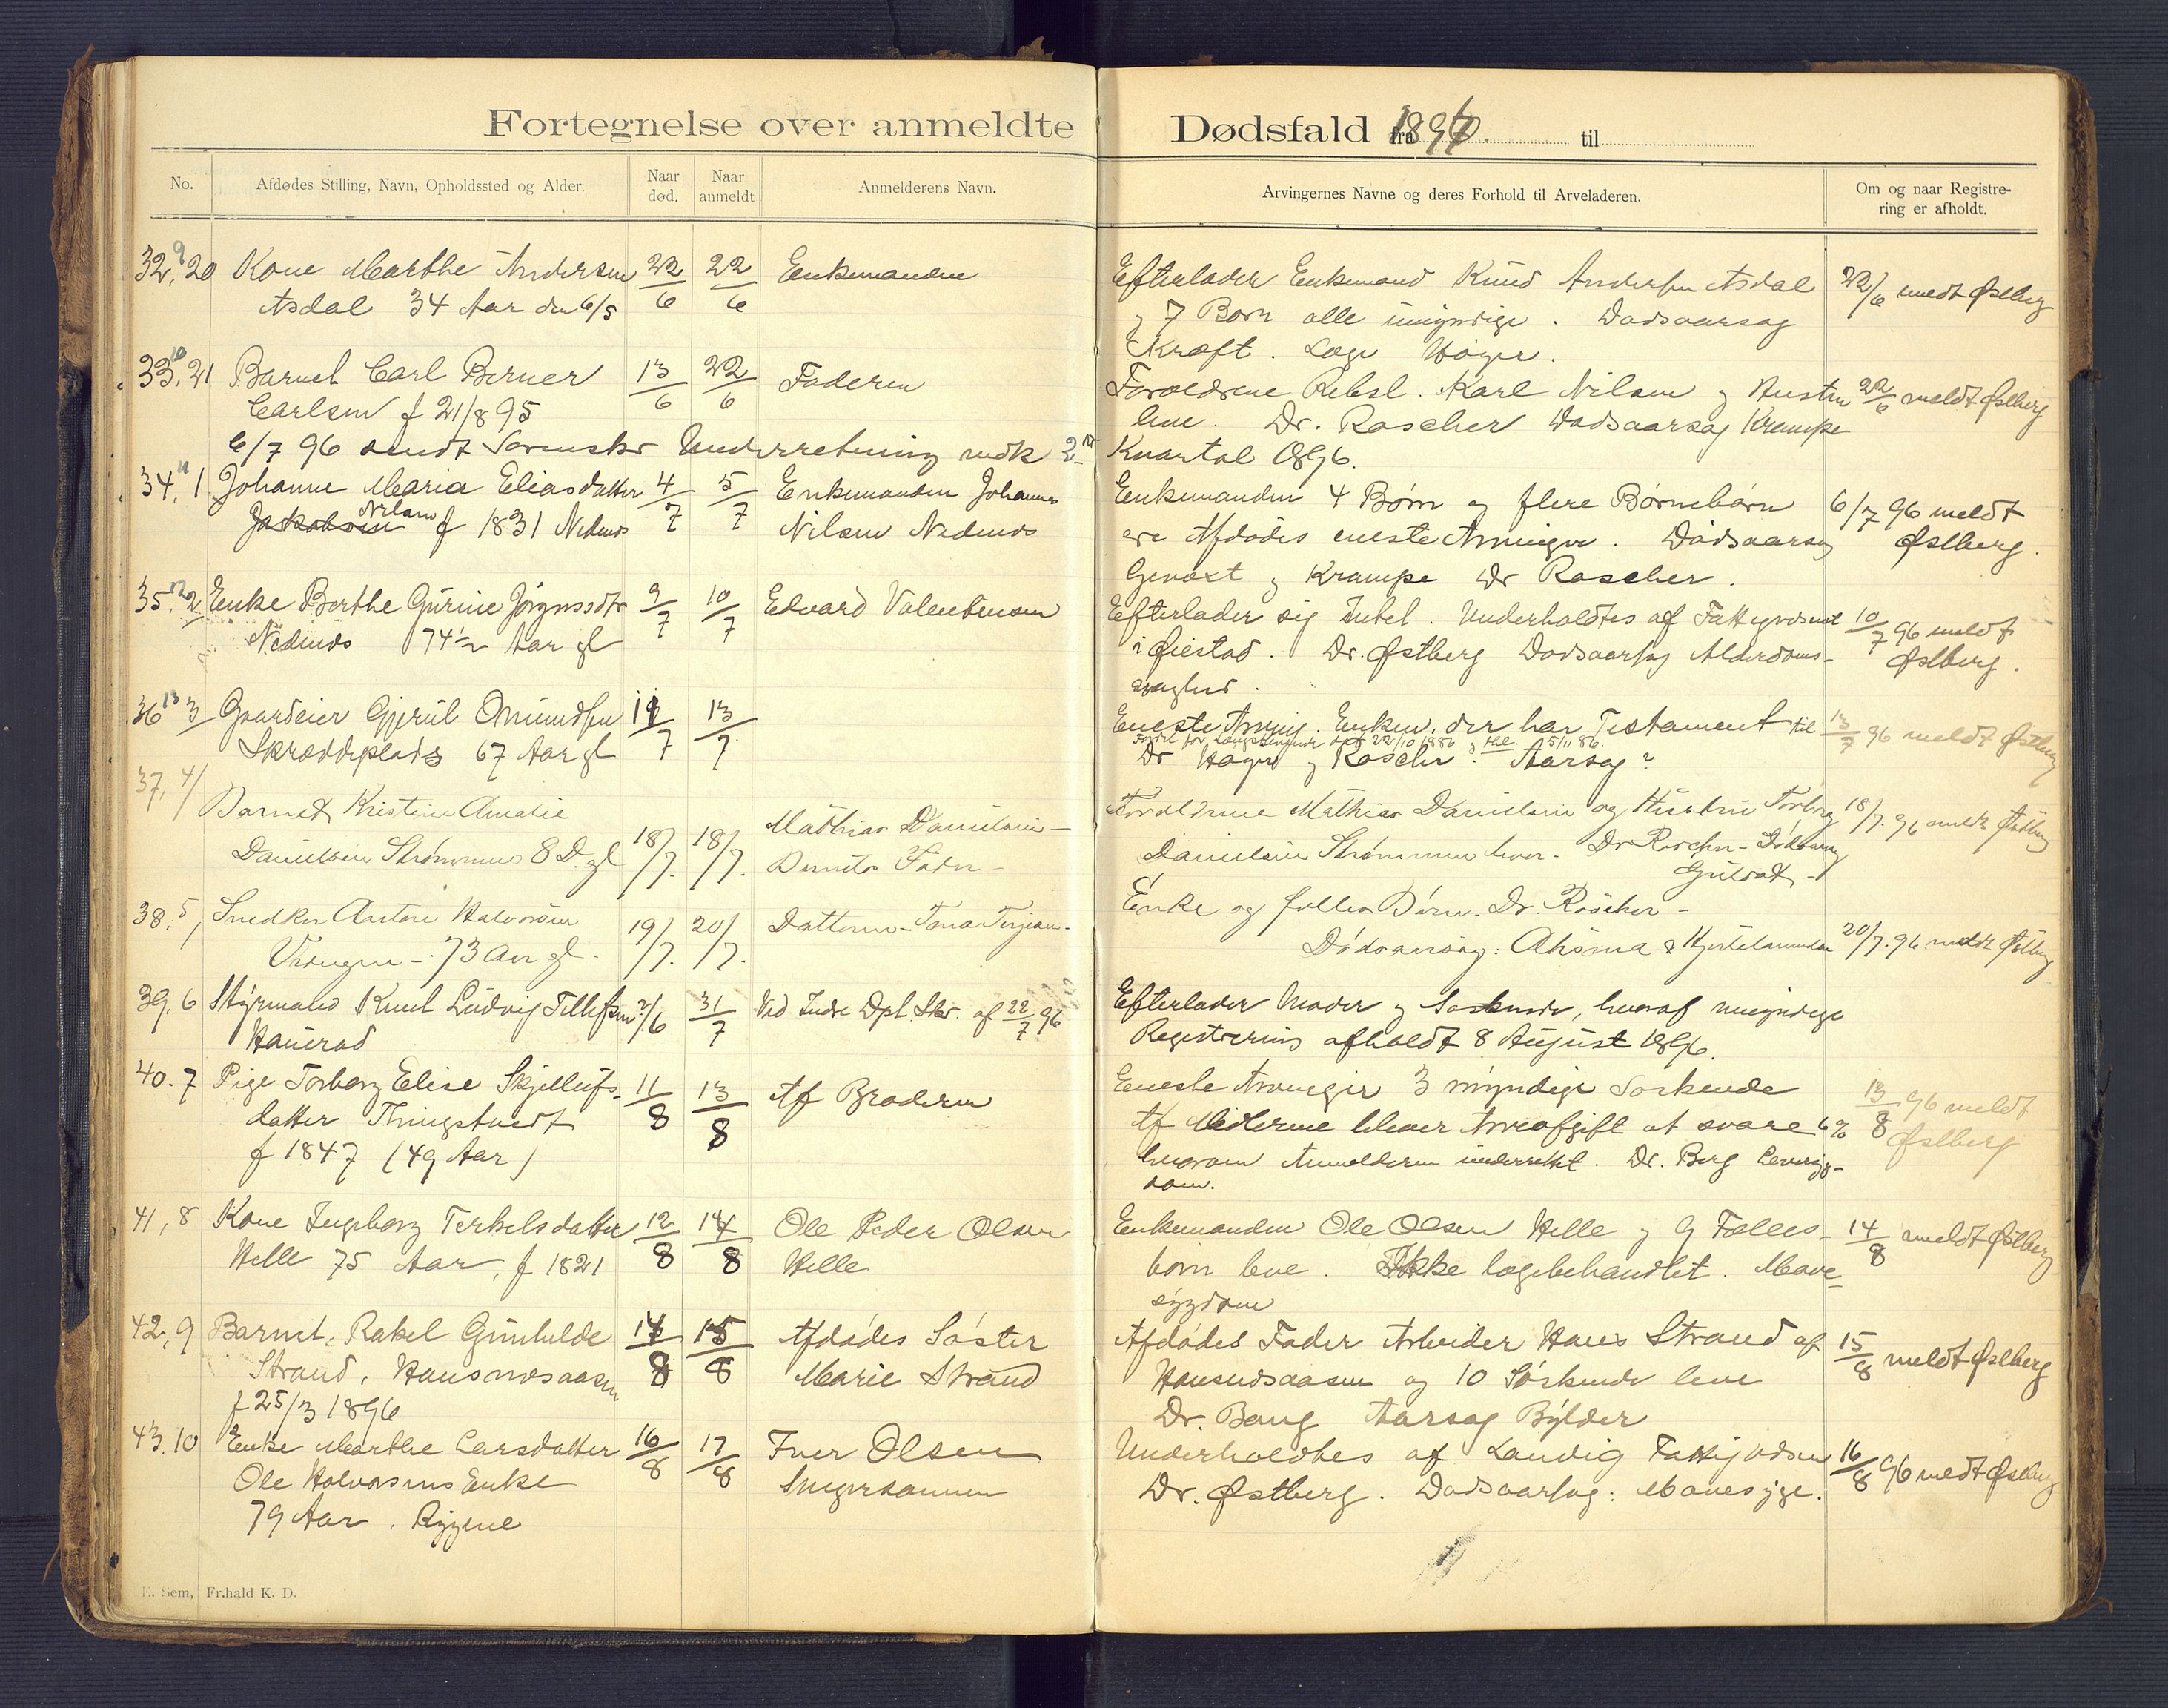 Fortegnelse over anmeldte Dødsfald fra 1896. til
No. Afdødes Stilling, Navn, Opholdssted og Alder. Naar død. Naar anmeldt Anmelderens Navn. Arvingernes Navne og deres Forhold til Arveladeren. Om og naar Registrering er afholdt.
32, 9 20 Kone Marthe Andersen 22/6 22/6 Enkemanden
Asdal 34 Aar den 6/5
Efterlader Enkemand Knud Andersen Asdal 22/6 meldt Østberg
og 7 Børn alle umyndige. Dødsaarsag
Kræft. Læge Høyer.
33, 10 21 Barnet Carl Berner 13/6 22/6 Faderen
Carlsen f 21/8 95
Forældrene Rebsl. Karl Nilsen og Hustru 22/6 meldt Østberg
leve. Dr. Rascher Dødsaarsag Krampe
6/7 96 sendt Sorenskr Underretning medk 2det
Kvartal 1896.
34, 11 1 Johanne Maria Eliasdatter 4/7 5/7 Enkemanden Johannes
Jakobsen Nilsen f 1831 Nedenes Nilsen Nedenes
Enkemanden 4 Børn og flere Børnebørn 6/7 96 meldt
ere Afdødes eneste Arvinger. Dødsaarsag Østberg.
Genoxt og Krampe Dr Rascher.
35, 12 2 Enke Berthe Gurine Jörgensdtr 9/7 10/7 Edvard Valentinsen
Nedenes 74 1/2 Aar gl
Efterlader sig Intet. Underholdtes af Fattigvæsenet 10/7 96 meldt
i Øiestad. Dr. Østberg Dødsaarsag Alderdoms- Østberg.
svaghed.
36 13 3 Gaardeier Gjerul Omundsen 11/7 13/7
Skræddeplads 67 Aar gl
Eneste Arving. Enken, der har Testament til 13/7 96 meldt Østberg
Fordel for Længstlevende dat 22/10 1886 og thl. 5/11 86.
Dr Høyer og Rascher. Aarsag?
37, 4/ Barnet Kristine Amalie
Danielsen Strømmen 8 D. gl 18/7. 18/7. Mathias Danielsen-
Barnets Fader-
Forældrene Mathias Danielsen og Hustru Torborg 18/7. 96 meldt Østberg
Danielsen Strømmen lever. Dr Rascher- Dödsaarsag
Gulsot-
38. 5, Snedker Antoni Halvorsen 19/7. 20/7. Datteren- Tona Terjesen-
73 Aar gl.
Enke og fælles Börn. Dr. Rascher-
Dødsaarsag: Astma & Hjertelammelse 20/7. 96 meldt Østberg
39. 6 Styrmand Knut Ludvig Tellefsen 2/6 31/7 Ved Indre Dpt. Skr. af 22/7 96
Hauerød
Efterlader Moder og Søskende, hvoraf umyndige
Registrering afholdt 8 August 1896.
40. 7 Pige Torborg Elise Skjellufs- 11/8 13/8 Af Broderen
datter Thingstvedt
f 1847 (49 Aar)
Eneste Arvinger 3 myndige Søskende 13/8 96 meldt
Af Midlerne bliver Arveafgift at svare 6% Østberg
hvorom Anmelderen underrettet. Dr. Berg Leversyg-
dom.
41, 8 Kone Ingeborg Terkelsdatter 12/8 14/8 Ole Peder Olsen
Helle 75 Aar, f 1821 Helle
Enkemanden Ole Olsen Helle og 9 Fælles- 14/8 meldt Østberg
børn leve. Ikke lægebehandlet. Mave-
sygdom
42, 9 Barnet, Rakel Gunhilde 14/8 15/8 Afdødes Søster
Strand, Hansnæsaasen Marie Strand
f 25/3 1896
Afdødes Fader Arbeider Hans Strand af 15/8 meldt Østberg
Hansnæsaasen og 10 Söskende leve
Dr. Bang Aarsag Bylder
43. 10 Enke Marthe Larsdatter 16/8 17/8 Iver Olsen
Ole Halvorsens Enke Svigersønnen
79 Aar, Rygene
Underholdtes af Landvig Fattigvæsen 16/8 96 meldt Østberg
Dr. Østberg. Dødsaarsag: Mavesyge.
E. Sem, Fr.hald K. D.